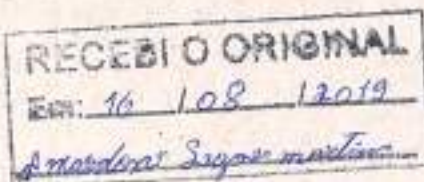 RECEBI O ORIGINAL
Em: 16 / 08 / 2019